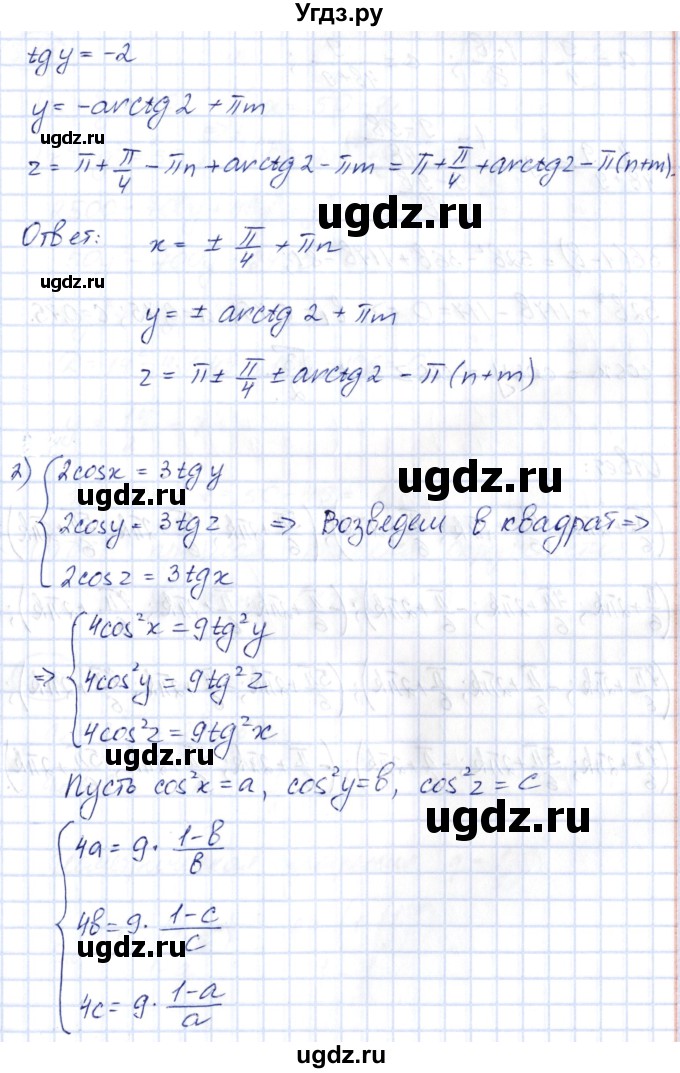 Угдз.ру
tg y = -2
y = -arctg 2 + πm
ugdz.ru
z = π + π/4 - πn + arctg 2 - πm = π + π/4 + arctg 2 - π(n+m).
ugdz.ru
Ответ: x = ± π/4 + πn
y = ± arctg 2 + πm
z = π ± π/4 ± arctg 2 - π(n+m)
2) { 2cosx = 3tg y
ugdz.ru
ugdz.ru
2cosy = 3tg z => Возведем в квадрат =>
2cos z = 3tg x
=> { 4cos²x = 9tg²y
4cos²y = 9tg²z
4cos²z = 9tg²x
ugdz.ru
Пусть cos²x = a, cos²y = b, cos²z = c
ugdz.ru
{ 4a = 9 · (1-b)/b
4b = 9 · (1-c)/c
ugdz.ru
4c = 9 · (1-a)/a
ugdz.ru